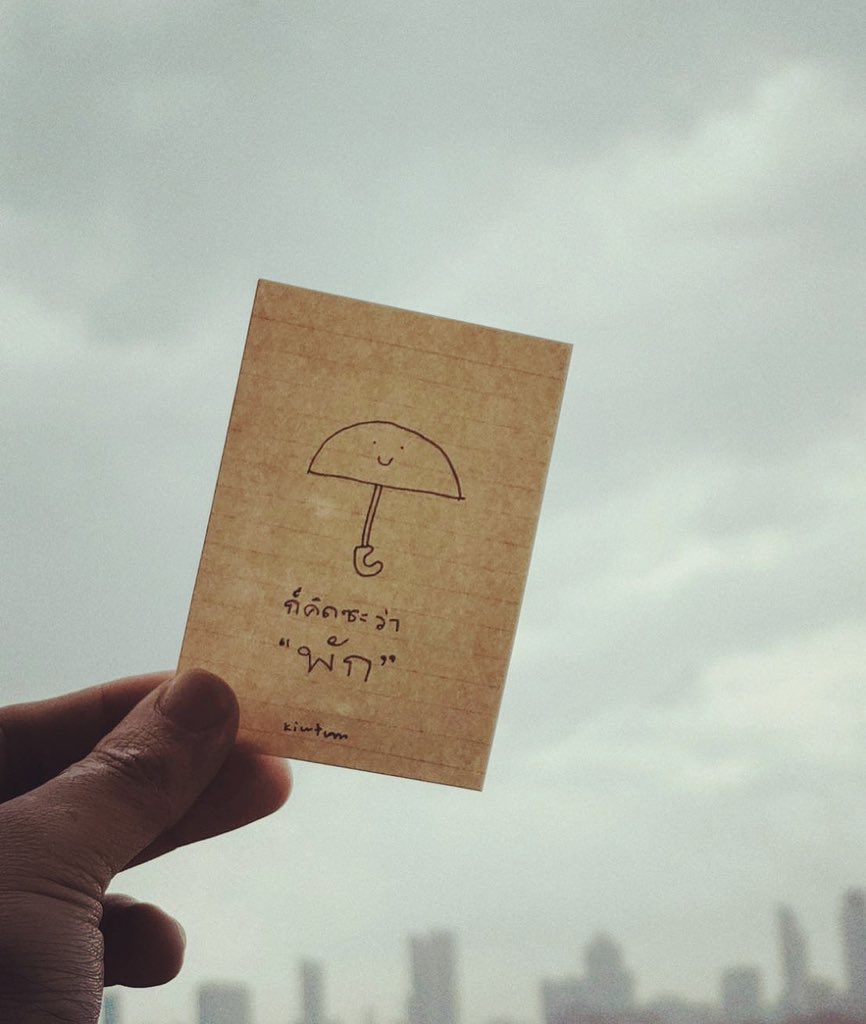 ก็คิดซะว่า
"พัก"
kiwtum